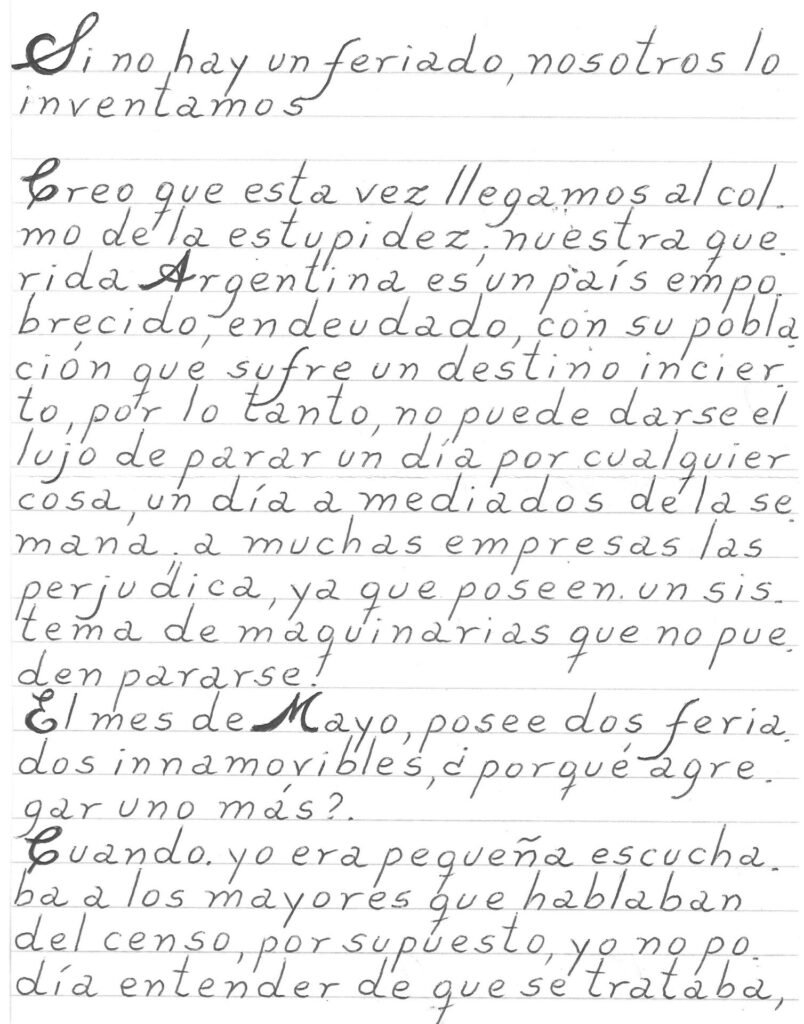 Si no hay un feriado, nosotros lo
inventamos
Creo que esta vez llegamos al col.
mo de la estupidez; nuestra que.
rida Argentina es un país empo.
brecido, endeudado, con su pobla
ción que sufre un destino incier.
to, por lo tanto, no puede darse el
lujo de parar un día por cualquier
cosa, un día a mediados de la se.
mana, a muchas empresas las
perjudica, ya que poseen un sis.
tema de maquinarias que no pue.
den pararse!
El mes de Mayo, posee dos feria.
dos innamovibles, ¿porqué agre.
gar uno más?.
Cuando. yo era pequeña escucha.
ba a los mayores que hablaban
del censo, por supuesto, yo no po.
día entender de que se trataba,